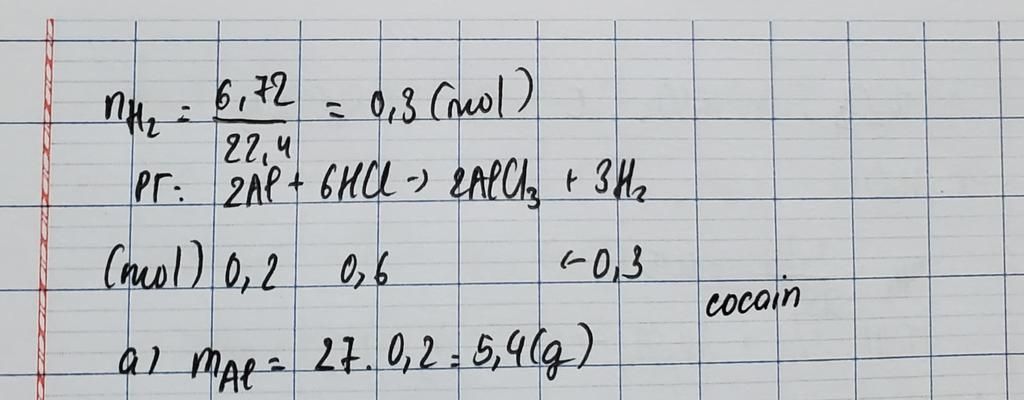 nH₂ = 6,72 / 22,4 = 0,3 (mol)
PT: 2Al + 6HCl → 2AlCl₃ + 3H₂
(mol) 0,2 0,6 ← 0,3
cocain
a) mAl = 27 . 0,2 = 5,4 (g)